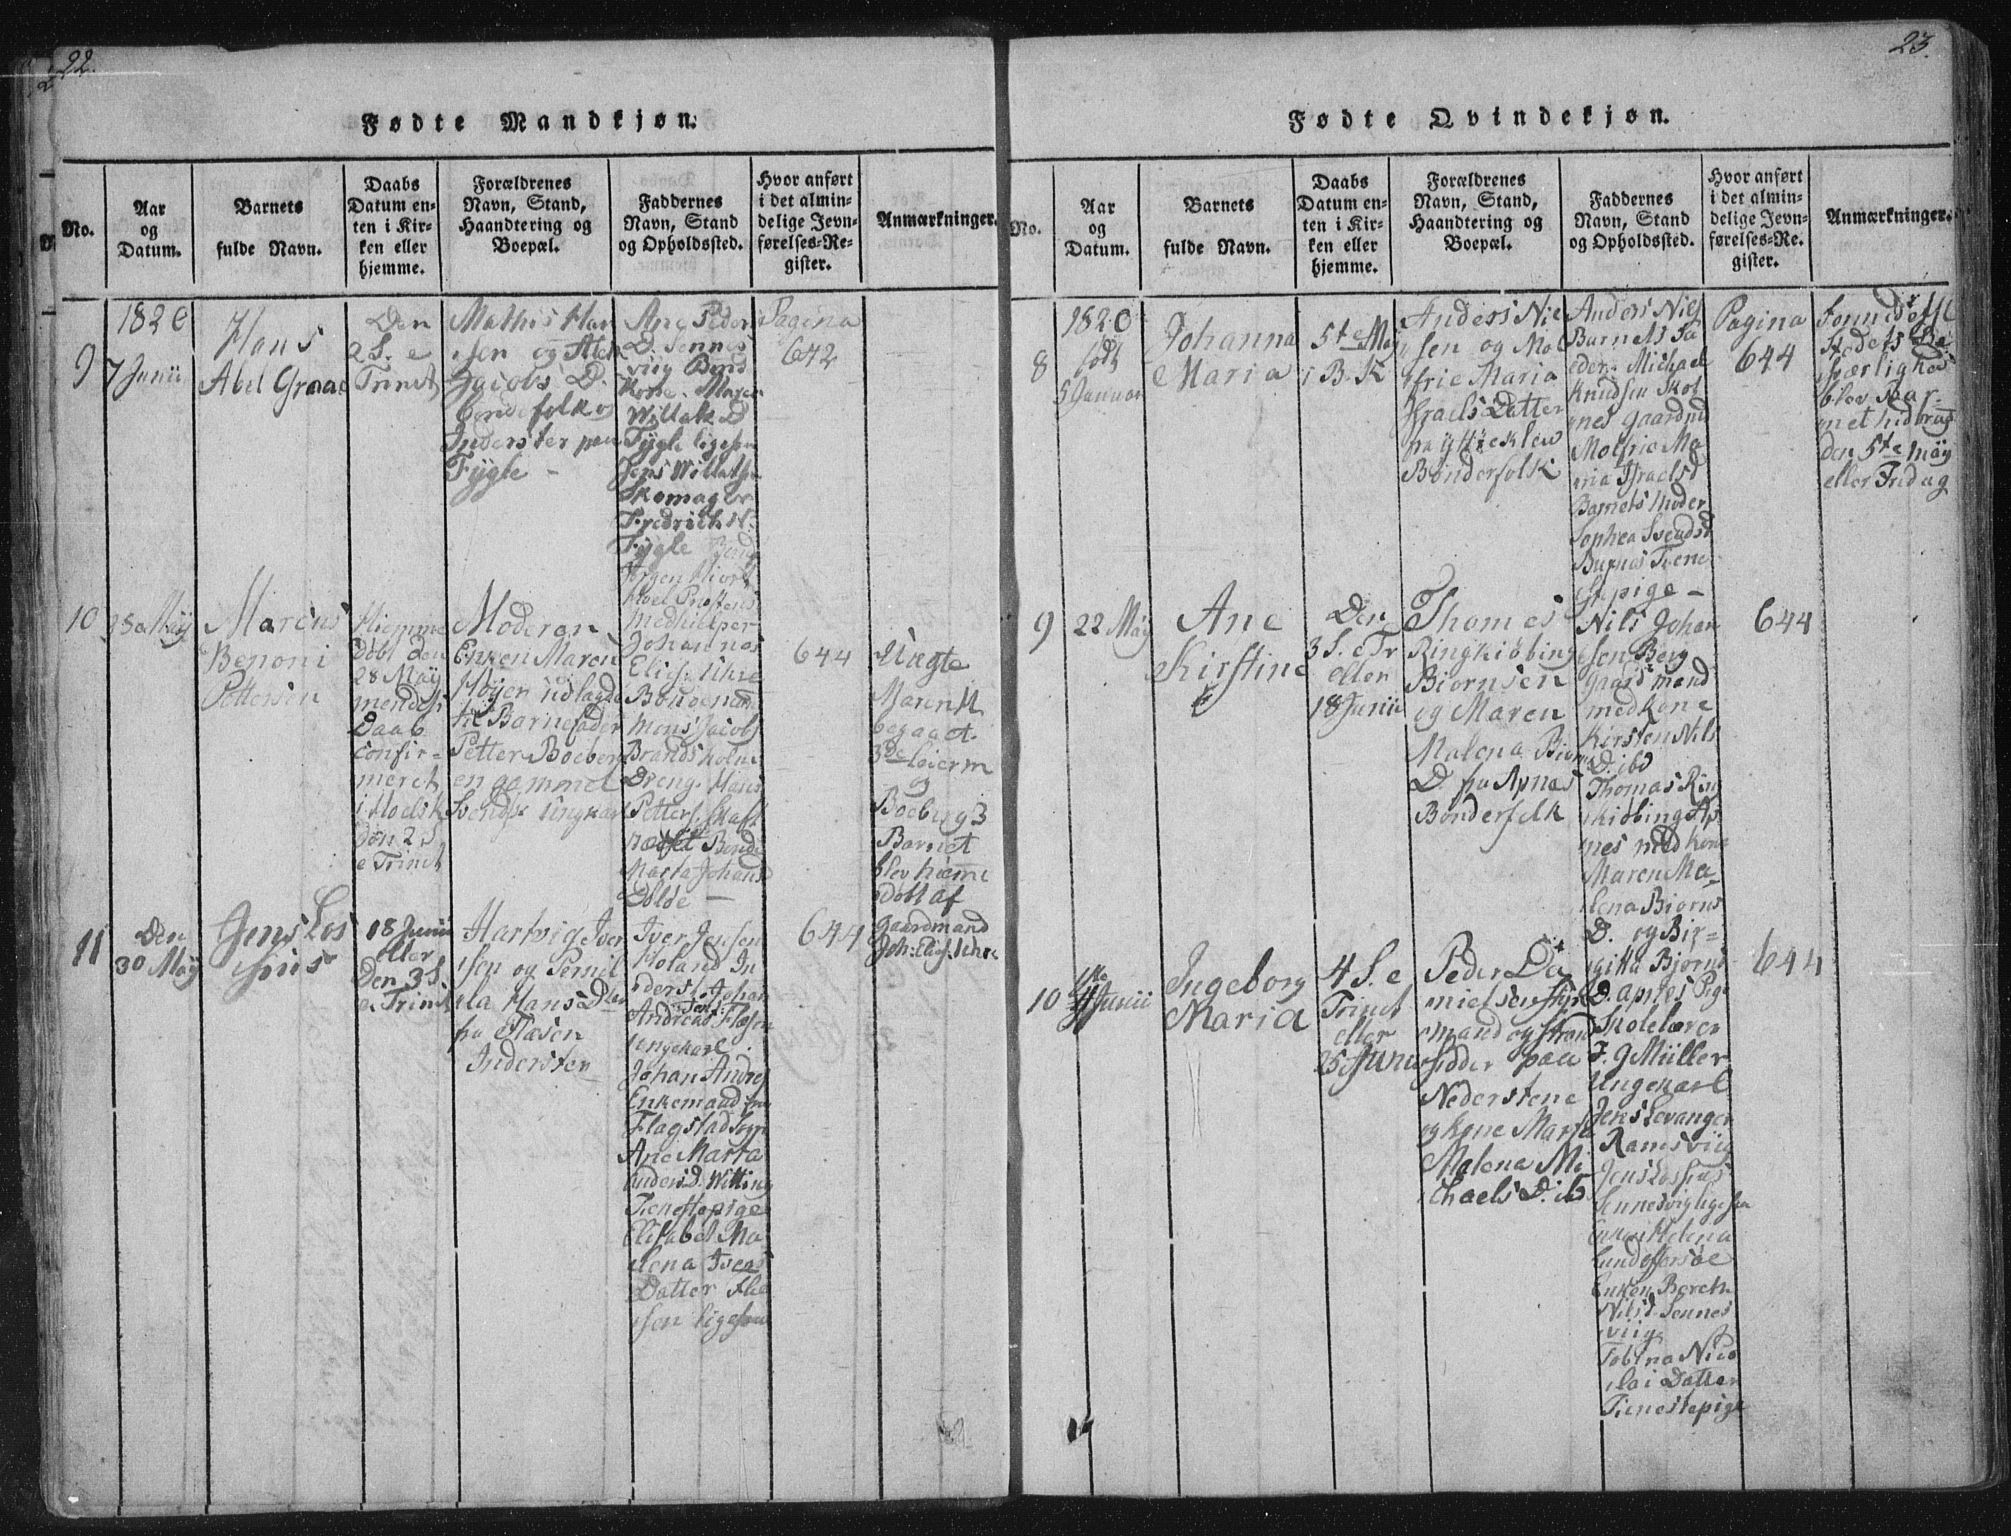 22.
Fødte Mandkjøn.
No.
Aar
og
Datum.
Barnets
fulde Navn.
Daabs
Datum en-
ten i Kir-
ken eller
hjemme.
Forældrenes
Navn, Stand,
Haandtering og
Boepæl.
Faddernes
Navn, Stand
og Opholdssted.
Hvor anført
i det almin-
delige Jevn-
førelses-Re-
gister.
Anmærkninger.
9
1820
7 Junii
Hans
Abel Graae
Den
2 S. e
Trinit
Mathis Han
sen og
Jacobs D.
folk og
Inderster paa
Fygle –
Ane Peder
D. Sennes
viig
Kone. Maren
Willats D
Fygle ligesaa
Jens
Skomager
Fredrich H.
Fygle
Jørgen Hiort
Hoel Præstens
medhielper
Pagina
642
10
28 May
Marcus
Benoni
Pettersen
Hiemme
døbt den
28 May
Daab
confir-
meret
i Hoelsk
den 2 S
e Trinit
Moderen
Enken Maren
Høyer udlagde
til Barnefader
Petter Boeberg
en gammel
Svendsk Ungkarl
Johannes
Elias Uhre
Bondemand
Mons Jacobs
Brandsholm
Dreng. Hans
Petters. Skaft
næsset Bonde
Marta Johans
Dolde –
644
Uægte
Maren H
begaaet
3de leierm
og
Boeberg 3
Barnet
blev hiemme
døbt af
Gaardmand
Joh: Elias Uhre
11
Den
30 May
Jens Los
sius
18 Junii
eller
Den 3 S.
e Trinit
Hartvig Iver
sen og Pernil
la Hans D
fra Flæsen
Indersten
Iver Jensen
Holand In
derst. Johan
Andreas Flæsen
ungekarl
Johan Andres
Enkemand fra
Flagstad
Ane Marta
Anders D. Witting
Tienestepige
Elisabet Ma
lena Ivers
Datter Flæ
sen ligesaa
644
23.
Fødte Qvindekjøn.
No.
Aar
og
Datum.
Barnets
fulde Navn.
Daabs
Datum en-
ten i Kir-
ken eller
hjemme.
Forældrenes
Navn, Stand,
Haandtering og
Boepæl.
Faddernes
Navn, Stand
og Opholdssted.
Hvor anført
i det almin-
delige Jevn-
førelses-Re-
gister.
Anmærkninger.
8
1820
født
5 Januar
Johanna
Maria
5te May
i B. K
Anders Nie
sen og Mol
frie Maria
Israels Datter
paa
Bønderfolk
Anders Nils
Barnets Fa
der. Michael
Knudsen Skol
nes Gaardmd
Molfrie Ma
ria Israels D
Barnets Moder
Sophea Svends D
Burnes Tiene
stpige –
Pagina
644
Formedelst
Stedets Be
sværlighed
blev Bar-
net hidbragt
den 5te May
eller Fredag
9
22 May
Ane
Kirstine
Den
3 S. e Tr
eller
18 Junii
Thomes
Ringkiøbing
Biørnsen
og Maren
Malena Biørns
D. fra Apnes
Bonderfolk
Nils Johan
sen Berg
Gaardmand
med Kone
Kirsten Nils
D. ibd
Thomas Ring
kiøbing Ap
nes med Kone
Maren Ma-
lena Biørns
D. og Bir=
gitta Bjørns
D. apnes Pige
644
10
Junii
Ingeborg
Maria
4 S. e
Trinit
eller
25 Junii
Peder Da
nielsen Styr
mand og Strand
sidder paa
Nederstene
og Kone Maria
Malena Mi
chaels D. ib
Skolelærer
F. G Müller
Ungekarl
Jens Levanger
Ramsviig
Jens Lossius
Sennesvig ligesaa
Enken Helena
Sund
Enken Bereth
Nils D Sennes
viig
Tobina Nico
lai Datter
Tienestepige
644